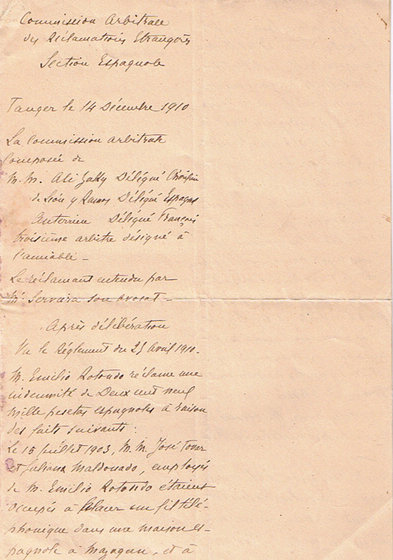 Commission Arbitrale
des Réclamations Etrangères
Section Espagnole
Tanger le 14 Décembre 1910
La Commission arbitrale
composée de
M.M. Ali Délégué
de León y Ramos Délégué Espagnol
Délégué Français
troisième arbitre désigné à
l'amiable –
Le réclamant entendu par
Mr Servaira son avocat –
Après délibération
Vu le Réglement du 23 Avril 1910 –
M. Emilio Rotondo réclame une
indemnité de Deux cent neuf
mille pesetas espagnoles à raison
des faits suivants :
Le 15 Juillet 1903, M.M. José
et Juliano Maldonado, employés
de M. Emilio Rotondo étaient
occupés à placer un fil télé-
phonique dans une maison es-
pagnole à Mazagan, et à